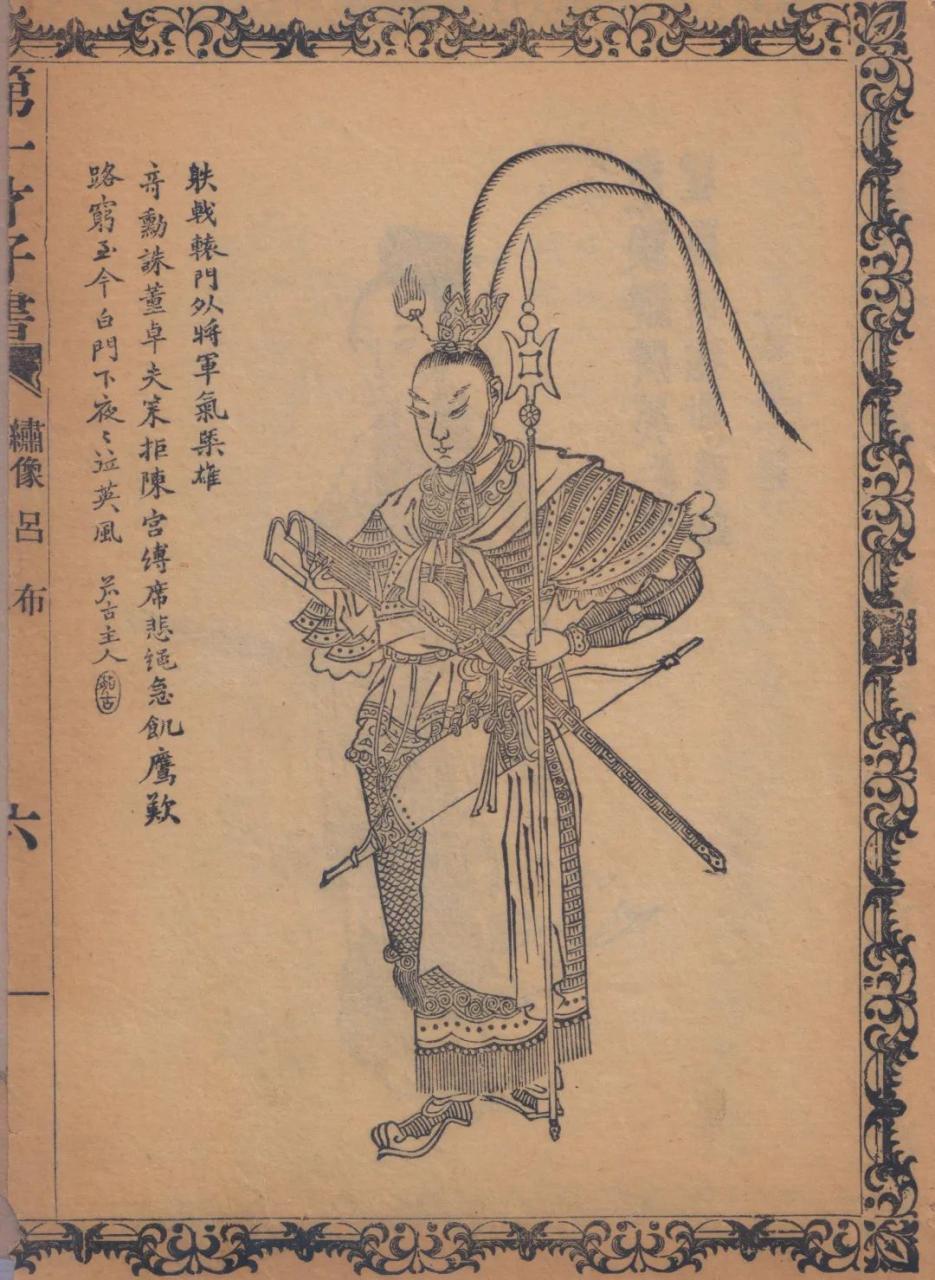 䠶戟轅門外將軍氣槩雄
竒勳誅董卓失筞拒陳宮縛虎悲繩急飢鷹歎
路窮至今白門下夜〻泣英風 古主人
古
第一才子書 繡像 呂布 六